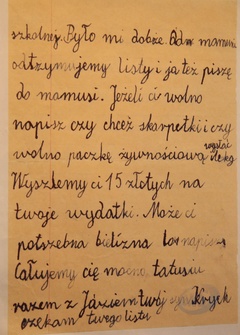 szkolnej. Było mi dobrze. Od mamusi
odtrzymujemy listy i ja też piszę
do mamusi. Jeżeli ci wolno
napisz czy chcesz skarpetki i czy
wolno paczkę żywnościową wysłać
i ile kg
Wyszlemy ci 15 złotych na
twoje wydatki. Może ci
potrzebna bielizna to napisz
Całujemy cię mocno, tatusiu
razem z Jaziem twój syn Krzyk
czekam twego listu